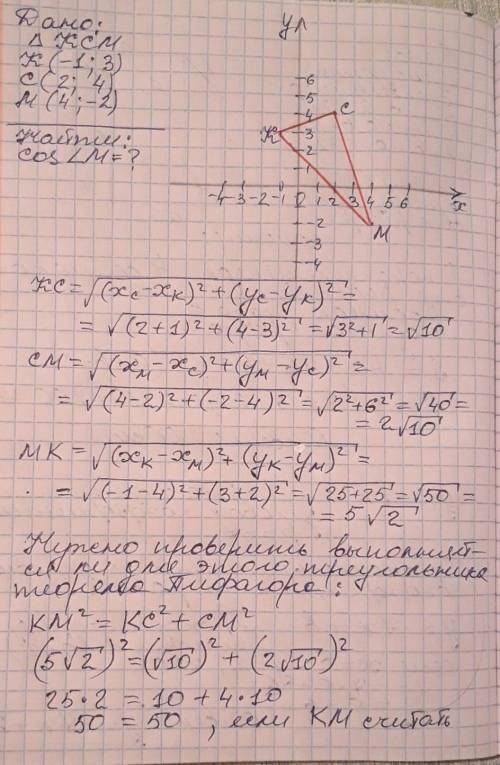 Дано:
Δ КСМ
К (-1; 3)
С (2; 4)
М (4; -2)
Найти:
cos ∠M = ?
у
6
5
4 С
К 3
2
1
-4 -3 -2 -1 0 1 2 3 4 5 6 х
-2 М
-3
-4
КС = √((x_C - x_K)² + (y_C - y_K)²) =
= √((2+1)² + (4-3)²) = √(3²+1) = √10
СМ = √((x_M - x_C)² + (y_M - y_C)²) =
= √((4-2)² + (-2-4)²) = √(2²+6²) = √40 =
= 2√10
МК = √((x_K - x_M)² + (y_K - y_M)²) =
= √((-1-4)² + (3+2)²) = √(25+25) = √50 =
= 5√2
Нужно проверить выполняет-
ся ли для этого треугольника
теорема Пифагора:
КМ² = КС² + СМ²
(5√2)² = (√10)² + (2√10)²
25·2 = 10 + 4·10
50 = 50 , если КМ считать